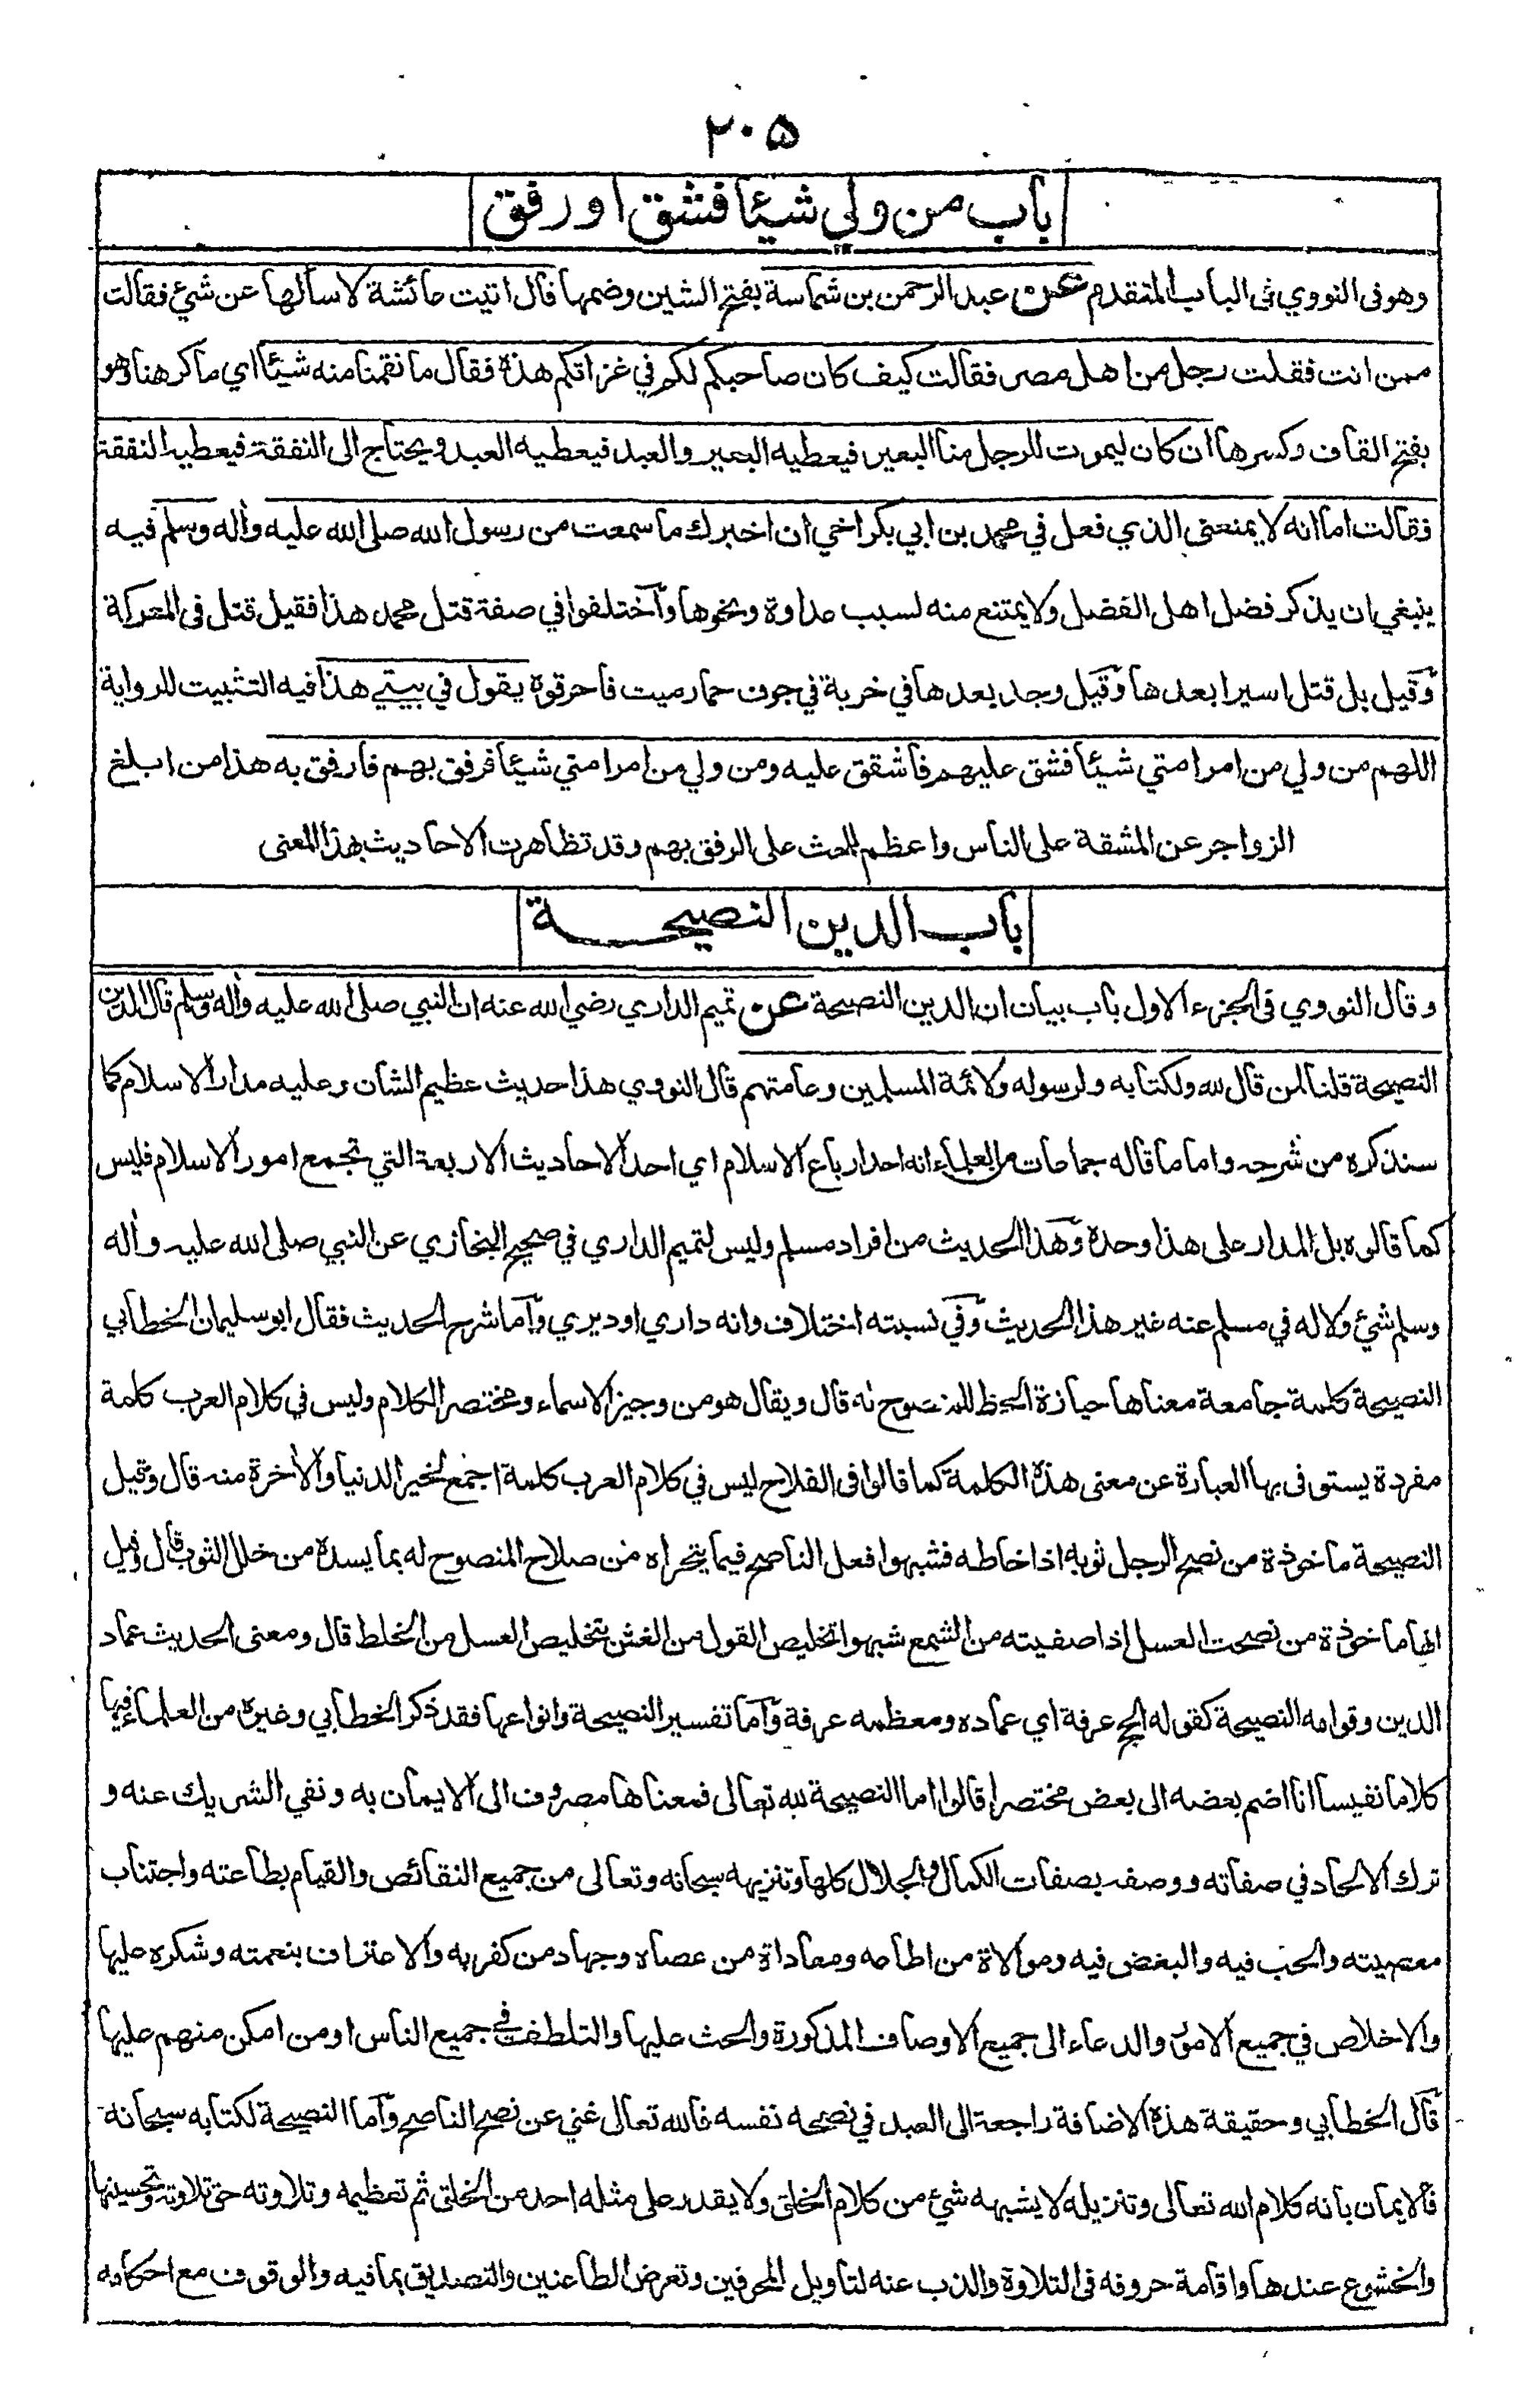 ٢٠٥
باب من ولي شيئا فشق او رفق
وهو فى النووي فى الباب المتقدم عن عبد الرحمن بن شماسة بفتح الشين وضمها قال اتيت عائشة لاسألها عن شيء فقالت
ممن انت فقلت رجل من اهل مصر فقالت كيف كان صاحبكم لكم في غزاتكم هذه فقال ما نقمنا منه شيئا اي ما كرهنا وهو
بفتح القاف وكسرها ان كان ليموت للرجل منا البعير فيعطيه البعير والعبد فيعطيه العبد ويحتاج الى النفقة فيعطيه النفقة
فقالت اما انه لا يمنعنى الذي فعل في محمد بن ابي بكر اخي ان اخبرك ما سمعت من رسول الله صلى الله عليه وأله وسلم فيه
ينبغي ان يذكر فضل اهل الفضل ولا يمتنع منه لسبب عداوة ونحوها وآختلفوا في صفة قتل محمد هذا فقيل قتل فى المعركة
وقيل بل قتل اسيرا بعدها وقيل وجد بعدها في خربة في جوف حمار ميت فاحرقوه يقول في بيتي هذا فيه التثبيت للرواية
اللهم من ولي من امر امتي شيئا فشق عليهم فاشقق عليه ومن ولي من امر امتي شيئا فرفق بهم فارفق به هذا من ابلغ
الزواجر عن المشقة على الناس واعظم الحث على الرفق بهم وقد تظاهرت الاحاديث بهذا المعنى
باب الدين النصيحة
وقال النووي فى الجزء الاول باب بيان ان الدين النصيحة عن تميم الداري رضي الله عنه ان النبي صلى الله عليه وأله وسلم قال الدين
النصيحة قلنا لمن قال لله ولكتابه ولرسوله ولائمة المسلمين وعامتهم قال النووي هذا حديث عظيم الشان وعليه مدار الاسلام كما
سنذكره من شرحه واما ما قاله جماعات من العلماء انه احد ارباع الاسلام اي احد الاحاديث الاربعة التي تجمع امور الاسلام فليس
كما قالوه بل المدار على هذا وحدة وهذا الحديث من افراد مسلم وليس لتميم الداري في صحيح البخاري عن النبي صلى الله عليه وأله
وسلم شيء ولا له في مسلم عنه غير هذا الحديث وفي نسبته اختلاف وانه داري او ديري وآما شرح الحديث فقال ابو سليمان الخطابي
النصيحة كلمة جامعة معناها حيازة الحظ للمنصوح له قال ويقال هو من وجيز الاسماء ومختصر الكلام وليس في كلام العرب كلمة
مفردة يستوفى بها العبارة عن معنى هذه الكلمة كما قالوا فى الفلاح ليس في كلام العرب كلمة اجمع لخير الدنيا والأخرة منه قال وقيل
النصيحة ماخوذة من نصح الرجل ثوبه اذا خاطه فشبهوا فعل الناصح فيما يتحراه من صلاح المنصوح له بما يسده من خلل الثوب قال وقيل
انها ماخوذة من نصحت العسل اذا صفيته من الشمع شبهوا تخليص القول من الغش بتخليص العسل من الخلط قال ومعنى الحديث عماد
الدين وقوامه النصيحة كقوله الحج عرفة اي عماده ومعظمه عرفة وآما تفسير النصيحة وانواعها فقد ذكر الخطابي وغيره من العلماء فيها
كلاما نفيسا انا اضم بعضه الى بعض مختصرا قالوا اما النصيحة لله تعالى فمعناها مصروف الى الايمان به ونفي الشريك عنه و
ترك الالحاد في صفاته ووصفه بصفات الكمال والجلال كلها وتنزيهه سبحانه وتعالى من جميع النقائص والقيام بطاعته واجتناب
معصيته والحب فيه والبغض فيه وموالاة من اطاعه ومعاداة من عصاه وجهاد من كفر به والاعتراف بنعمته وشكره عليها
والاخلاص في جميع الامور والدعاء الى جميع الاوصاف المذكورة والحث عليها والتلطف في جميع الناس او من امكن منهم عليها
قآل الخطابي وحقيقة هذه الاضافة راجعة الى العبد في نصحه نفسه فالله تعالى غني عن نصح الناصح وآما النصيحة لكتابه سبحانه
فالايمان بانه كلام الله تعالى وتنزيله لا يشبهه شيء من كلام الخلق ولا يقدر على مثله احد من الخلق ثم تعظيمه وتلاوته حق تلاوته وتحسينها
والخشوع عندها واقامة حروفه فى التلاوة والذب عنه لتاويل المحرفين وتعرض الطاعنين والتصديق بما فيه والوقوف مع احكامه